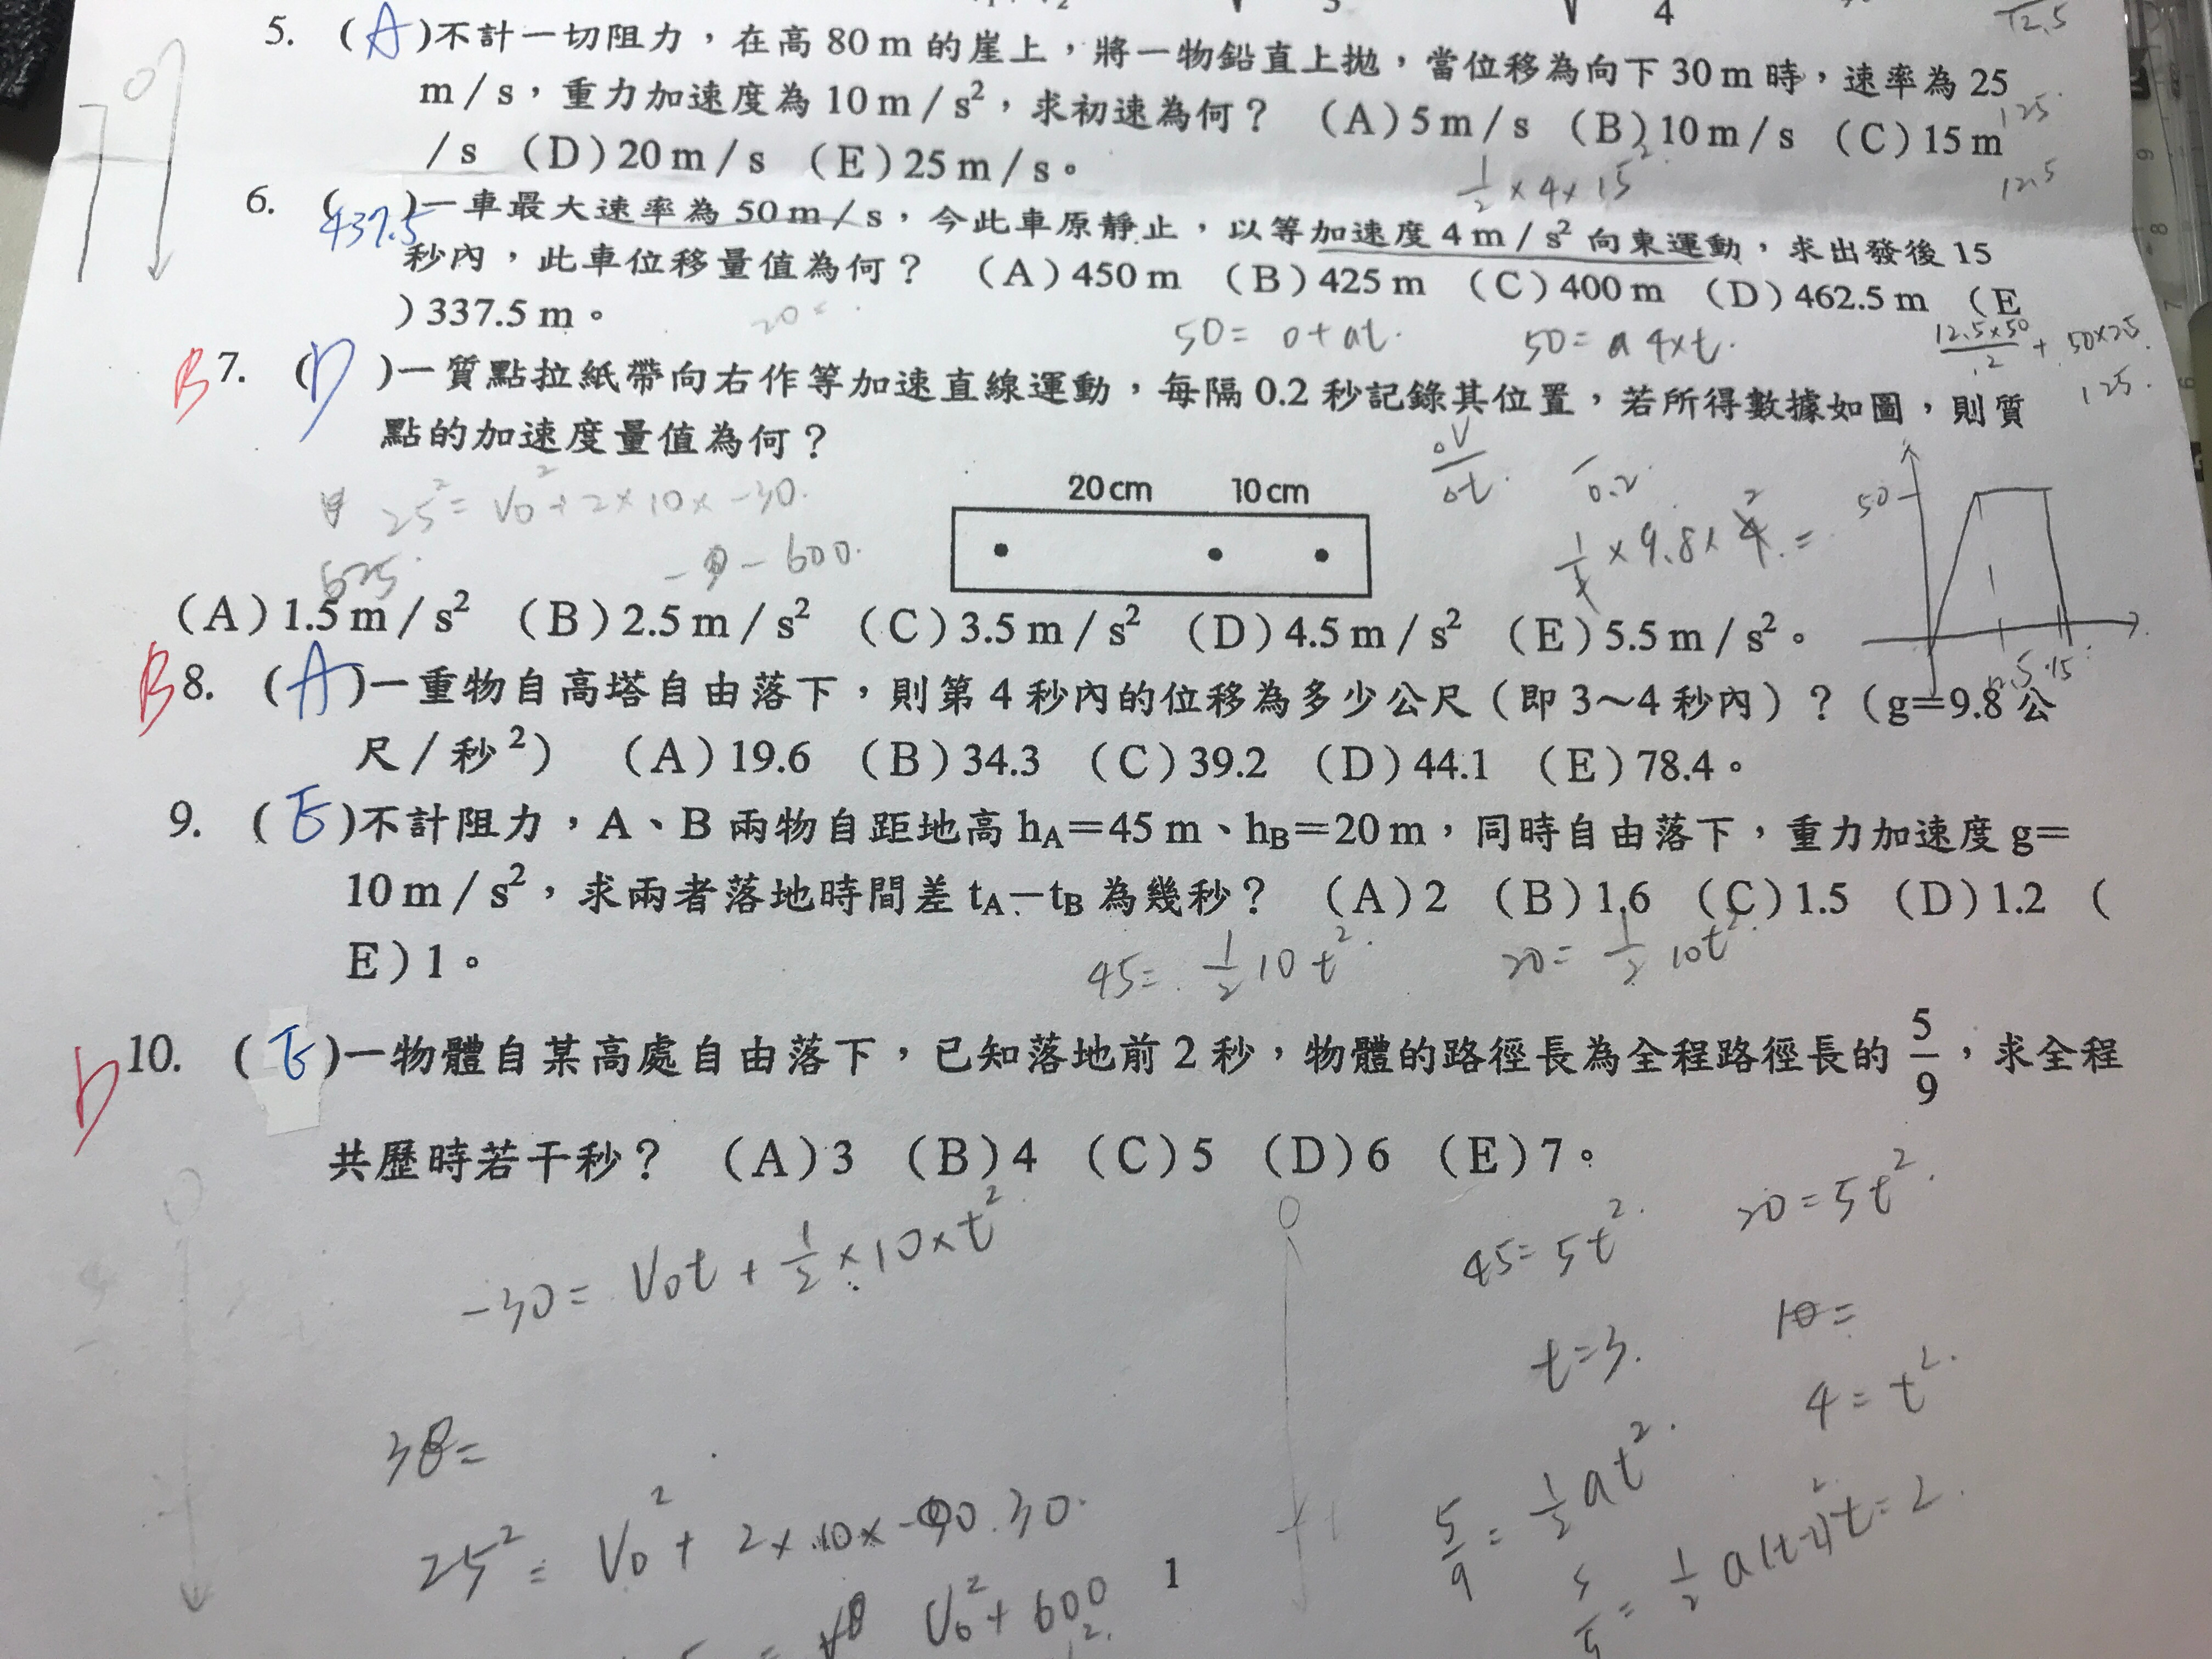 5. (A)不計一切阻力，在高 80 m 的崖上，將一物鉛直上拋，當位移為向下 30 m 時，速率為 25
m／s，重力加速度為 10 m／s²，求初速為何？ (A) 5 m／s (B) 10 m／s (C) 15 m
／s (D) 20 m／s (E) 25 m／s。
125.
1/2 × 4 × 15².
12.5
6. ( )一車最大速率為 50 m／s，今此車原靜止，以等加速度 4 m／s² 向東運動，求出發後 15
437.5
秒內，此車位移量值為何？ (A) 450 m (B) 425 m (C) 400 m (D) 462.5 m (E
) 337.5 m。
50 = 0 + at.
50 = a 4×t.
12.5×50/2 + 50×25.
125.
B 7. (D)一質點拉紙帶向右作等加速直線運動，每隔 0.2 秒記錄其位置，若所得數據如圖，則質
點的加速度量值為何？
25² = V₀² + 2×10×-30.
625.
-600.
20 cm 10 cm
0.2
50
(A) 1.5 m／s² (B) 2.5 m／s² (C) 3.5 m／s² (D) 4.5 m／s² (E) 5.5 m／s²。
B 8. (A)一重物自高塔自由落下，則第 4 秒內的位移為多少公尺（即 3～4 秒內）？（g＝9.8 公
尺／秒²） (A) 19.6 (B) 34.3 (C) 39.2 (D) 44.1 (E) 78.4。
9. (E)不計阻力，A、B 兩物自距地高 hA＝45 m、hB＝20 m，同時自由落下，重力加速度 g＝
10 m／s²，求兩者落地時間差 tA－tB 為幾秒？ (A) 2 (B) 1.6 (C) 1.5 (D) 1.2 (
E) 1。
45 = 1/2 10 t².
20 = 1/2 10t².
D 10. (E)一物體自某高處自由落下，已知落地前 2 秒，物體的路徑長為全程路徑長的 5/9，求全程
共歷時若干秒？ (A) 3 (B) 4 (C) 5 (D) 6 (E) 7。
-30 = V₀t + 1/2 × 10 × t²
45 = 5t².
20 = 5t².
t = 3.
10 =
4 = t².
5/9 = 1/2 at².
t = 2.
V₀² + 600
1